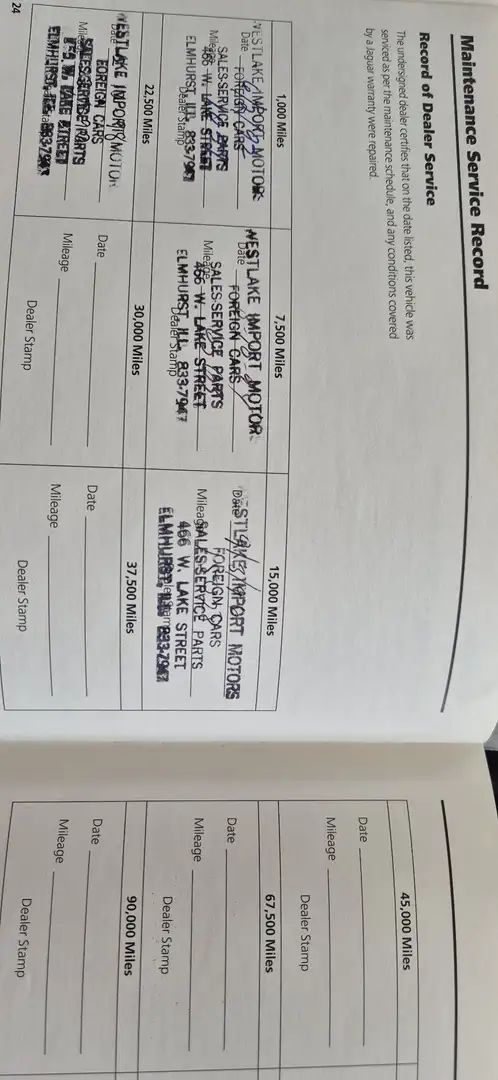 Maintenance Service Record
Record of Dealer Service
The undersigned dealer certifies that on the date listed, this vehicle was
serviced as per the maintenance schedule, and any conditions covered
by a Jaguar warranty were repaired.
1,000 Miles
WESTLAKE IMPORT MOTORS
Date
FOREIGN CARS
SALES-SERVICE PARTS
Mileage
466 W. LAKE STREET
Dealer Stamp
ELMHURST ILL. 833-7947
7,500 Miles
WESTLAKE IMPORT MOTOR
Date
FOREIGN CARS
SALES-SERVICE PARTS
Mileage
466 W. LAKE STREET
Dealer Stamp
ELMHURST ILL. 833-7947
15,000 Miles
ESTLAKE IMPORT MOTORS
Date
FOREIGN CARS
Mileage SALES-SERVICE PARTS
466 W. LAKE STREET
ELMHURST, ILL. 833-7947
22,500 Miles
WESTLAKE IMPORT MOTOR
Date
FOREIGN CARS
SALES-SERVICE PARTS
W. LAKE STREET
ELMHURST
30,000 Miles
Date
Mileage
Dealer Stamp
37,500 Miles
Date
Mileage
Dealer Stamp
24
45,000 Miles
Date
Mileage
Dealer Stamp
67,500 Miles
Date
Mileage
Dealer Stamp
90,000 Miles
Date
Mileage
Dealer Stamp